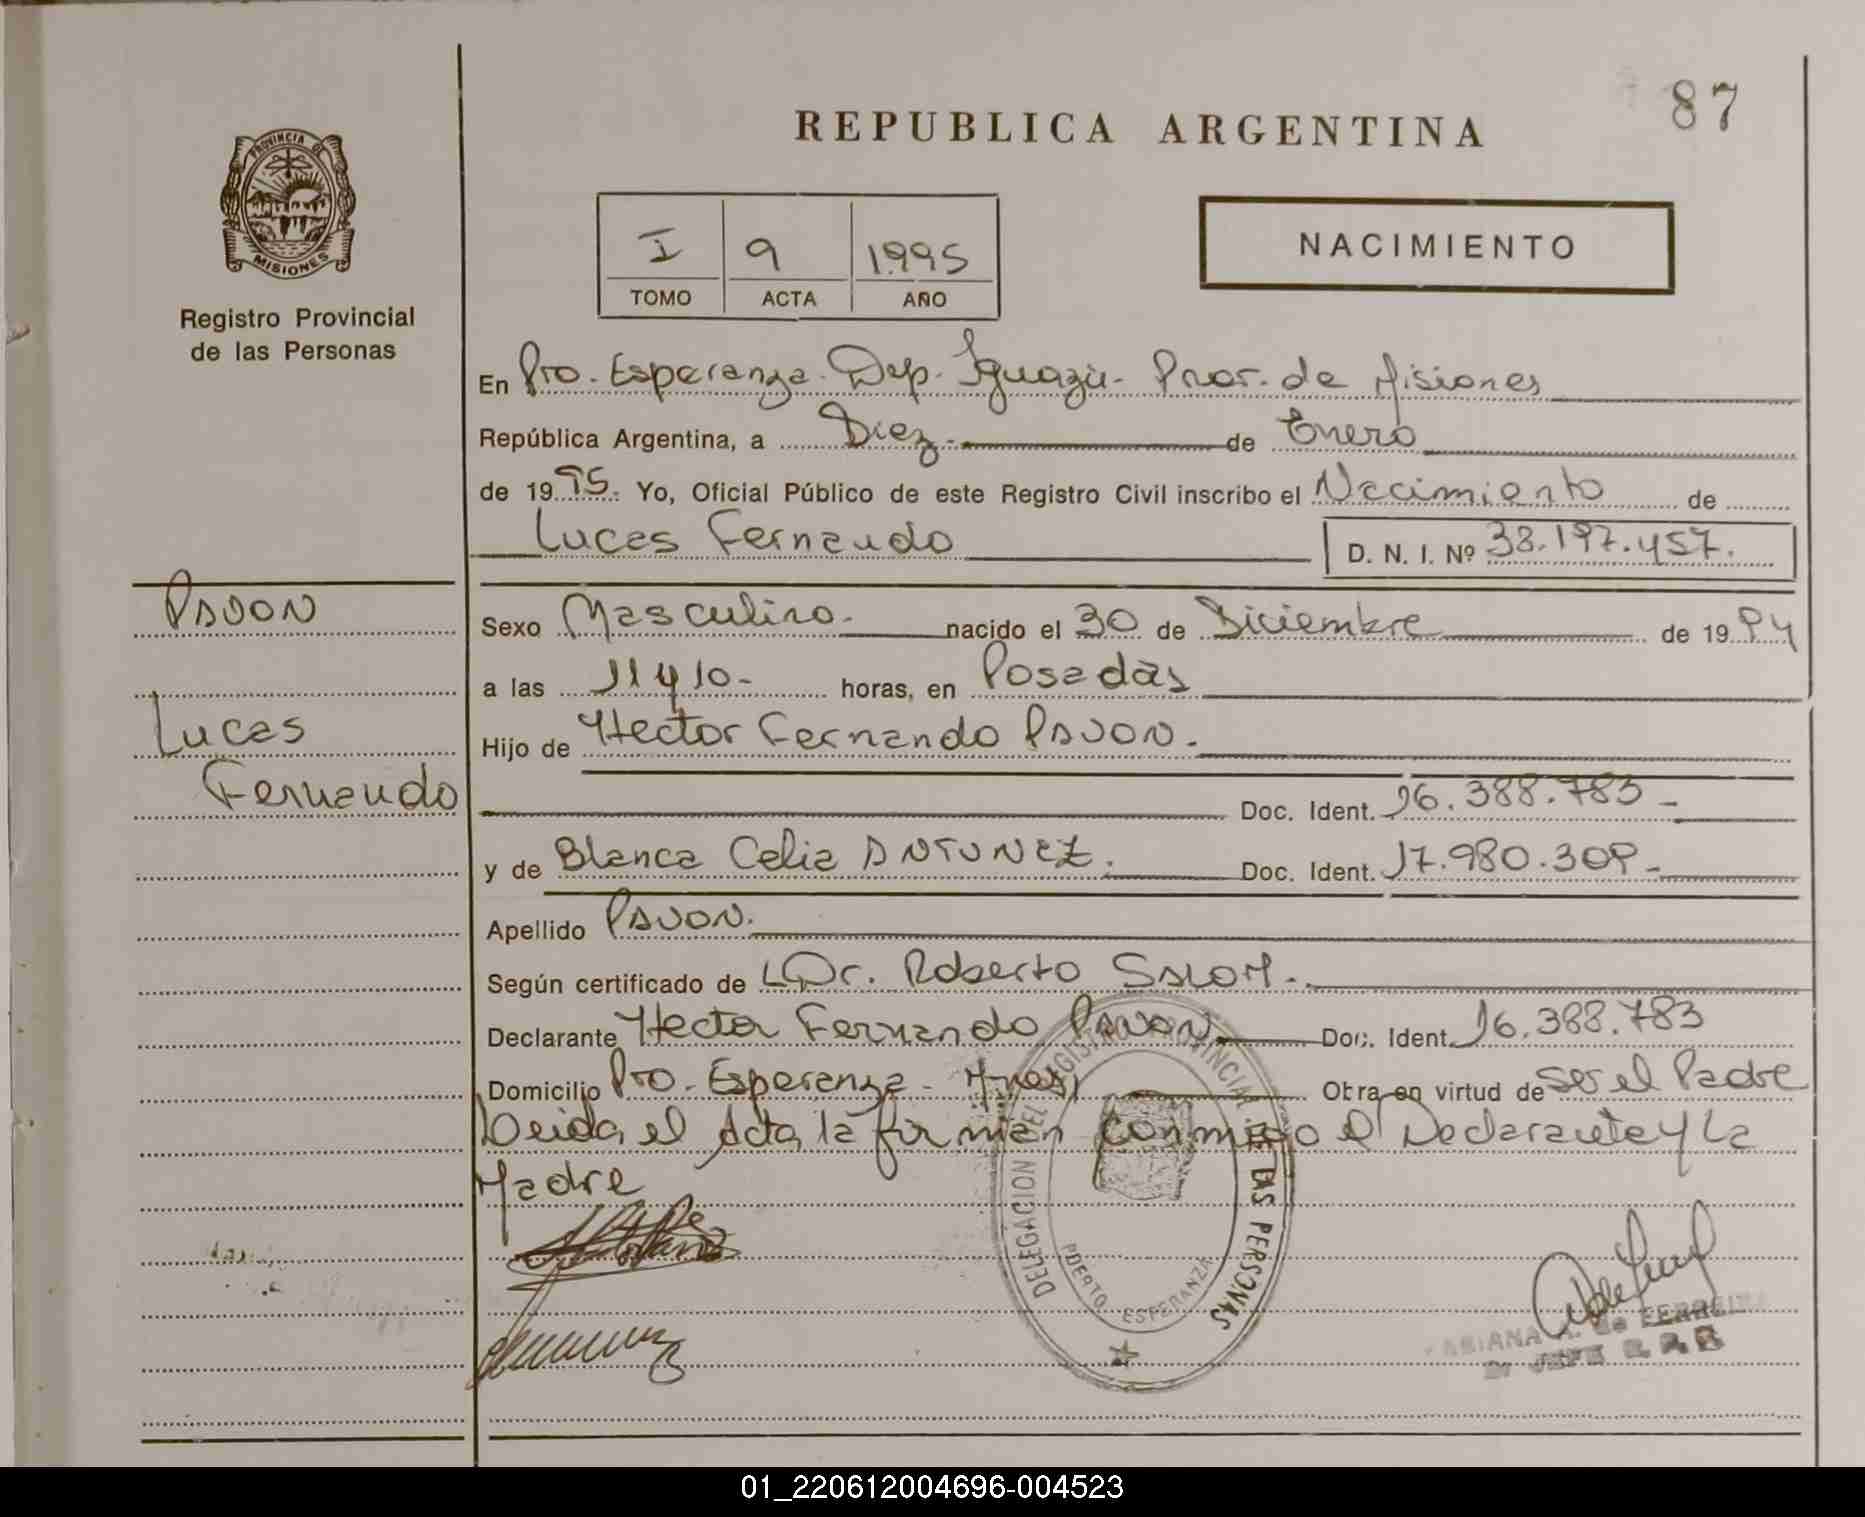 87
REPUBLICA ARGENTINA
PROVINCIA DE
MISIONES
Registro Provincial
de las Personas
I 9 1995
TOMO ACTA AÑO
NACIMIENTO
En Pto. Esperanza. Dep. Iguazú. Prov. de Misiones
República Argentina, a Diez.- de Enero
de 1995. Yo, Oficial Público de este Registro Civil inscribo el Nacimiento de
Lucas Fernando D. N. I. Nº 38.197.457.
PAVON
Sexo Masculino. nacido el 30 de Diciembre de 1994
a las 11 y 10- horas, en Posadas
Lucas
Hijo de Hector Fernando PAVON.
Fernando
Doc. Ident. 16.388.783-
y de Blanca Celia ANTUNEZ. Doc. Ident. 17.980.309-
Apellido PAVON.
Según certificado de Dr. Roberto SALOM.
Declarante Hector Fernando PAVON Doc. Ident. 16.388.783
Domicilio Pto. Esperanza - Mnes, Obra en virtud de ser el Padre
Leida el Acta la firman conmigo el Declarante y la
Madre
DELEGACION DEL REGISTRO PROVINCIAL DE LAS PERSONAS
PUERTO ESPERANZA
FABIANA A. de FERREIRA
JEFE R. P. P.
01_220612004696-004523